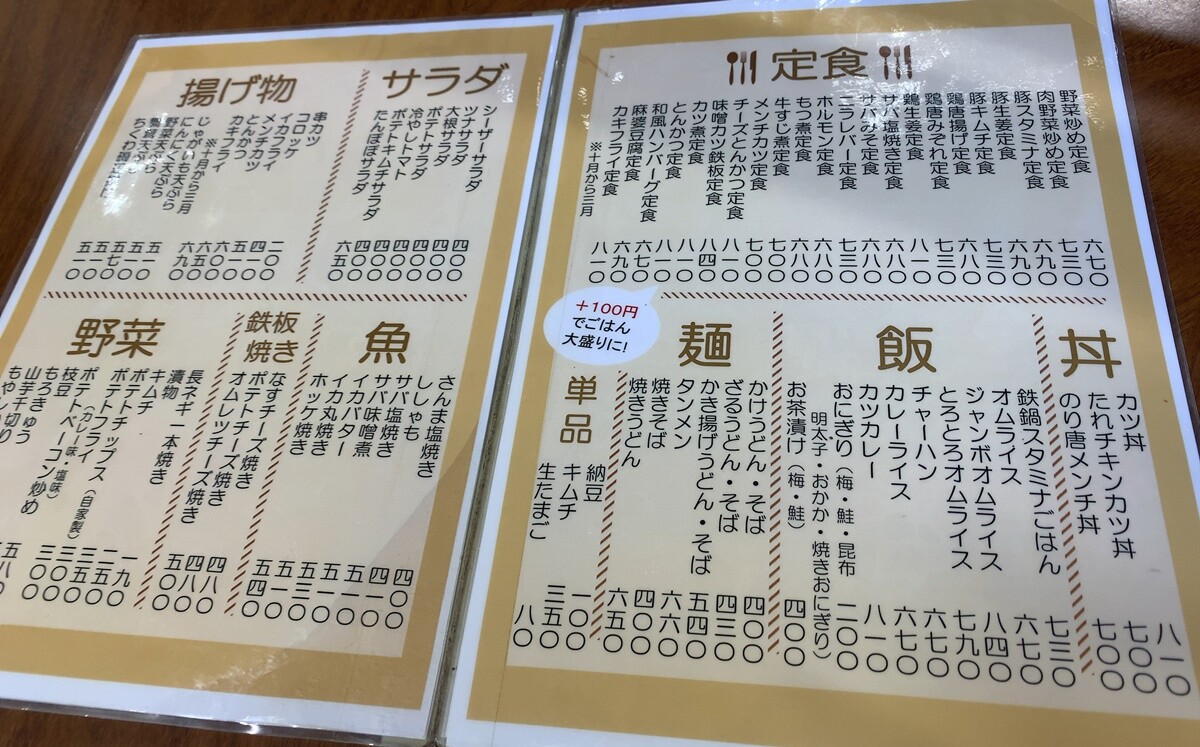 定食
野菜炒め定食 六七〇
肉野菜炒め定食 七三〇
豚スタミナ定食 六九〇
豚生姜定食 六九〇
豚キムチ定食 七三〇
鶏唐揚げ定食 六八〇
鶏唐みぞれ定食 七三〇
鶏生姜定食 八一〇
サバ塩焼き定食 六八〇
サバみそ定食 六八〇
ニラレバー定食 七三〇
ホルモン定食 六八〇
もつ煮定食 六八〇
牛すじ煮定食 七〇〇
メンチカツ定食 七〇〇
チーズとんかつ定食 八一〇
味噌カツ鉄板定食 八四〇
カツ煮定食 八一〇
とんかつ定食 八一〇
和風ハンバーグ定食 七六〇
麻婆豆腐定食 六九〇
カキフライ定食 八一〇
※十月から三月
丼
カツ丼 八一〇
たれチキンカツ丼 七〇〇
のり唐メンチ丼 七〇〇
飯
鉄鍋スタミナごはん 七三〇
オムライス 六七〇
ジャンボオムライス 八四〇
とろとろオムライス 七九〇
チャーハン 六七〇
カレーライス 六七〇
カツカレー 八一〇
おにぎり（梅・鮭・昆布 二〇〇
明太子・おかか・焼きおにぎり）
お茶漬け（梅・鮭） 四〇〇
麺
かけうどん・そば 四〇〇
ざるうどん・そば 四三〇
かき揚げうどん・そば 五四〇
タンメン 六六〇
焼きそば 四〇〇
焼きうどん 六五〇
+100円
でごはん
大盛りに!
単品
納豆 一〇〇
キムチ 三五〇
生たまご 八〇
サラダ
シーザーサラダ 四〇〇
ツナサラダ 四〇〇
大根サラダ 四〇〇
ポテトサラダ 四〇〇
冷やしトマト 四〇〇
ポテトキムチサラダ 四五〇
たんぽぽサラダ 六五〇
揚げ物
串カツ 二〇〇
コロッケ 四一〇
イカフライ 五一〇
メンチカツ 四〇〇
とんかつ 六〇〇
カキフライ 六五〇
※十月から三月
じゃがいも天ぷら
にんにく天ぷら
野菜天ぷら
ちくわ
魚
さんま塩焼き 四〇〇
ししゃも 四一〇
サバ塩焼き 五一〇
サバ味噌煮 五一〇
イカバター 五一〇
イカ丸焼き 五三〇
ホッケ焼き 五一〇
鉄板焼き
なすチーズ焼き 五一〇
ポテトチーズ焼き 五四〇
オムレツチーズ焼き 四八〇
野菜
長ネギ一本焼き 四八〇
漬物 五〇〇
キムチ
ポテトチップス（自家製）
ポテトフライ
（カレー味・塩味）
ポテトベーコン炒め
枝豆
もろきゅう
山芋千切り